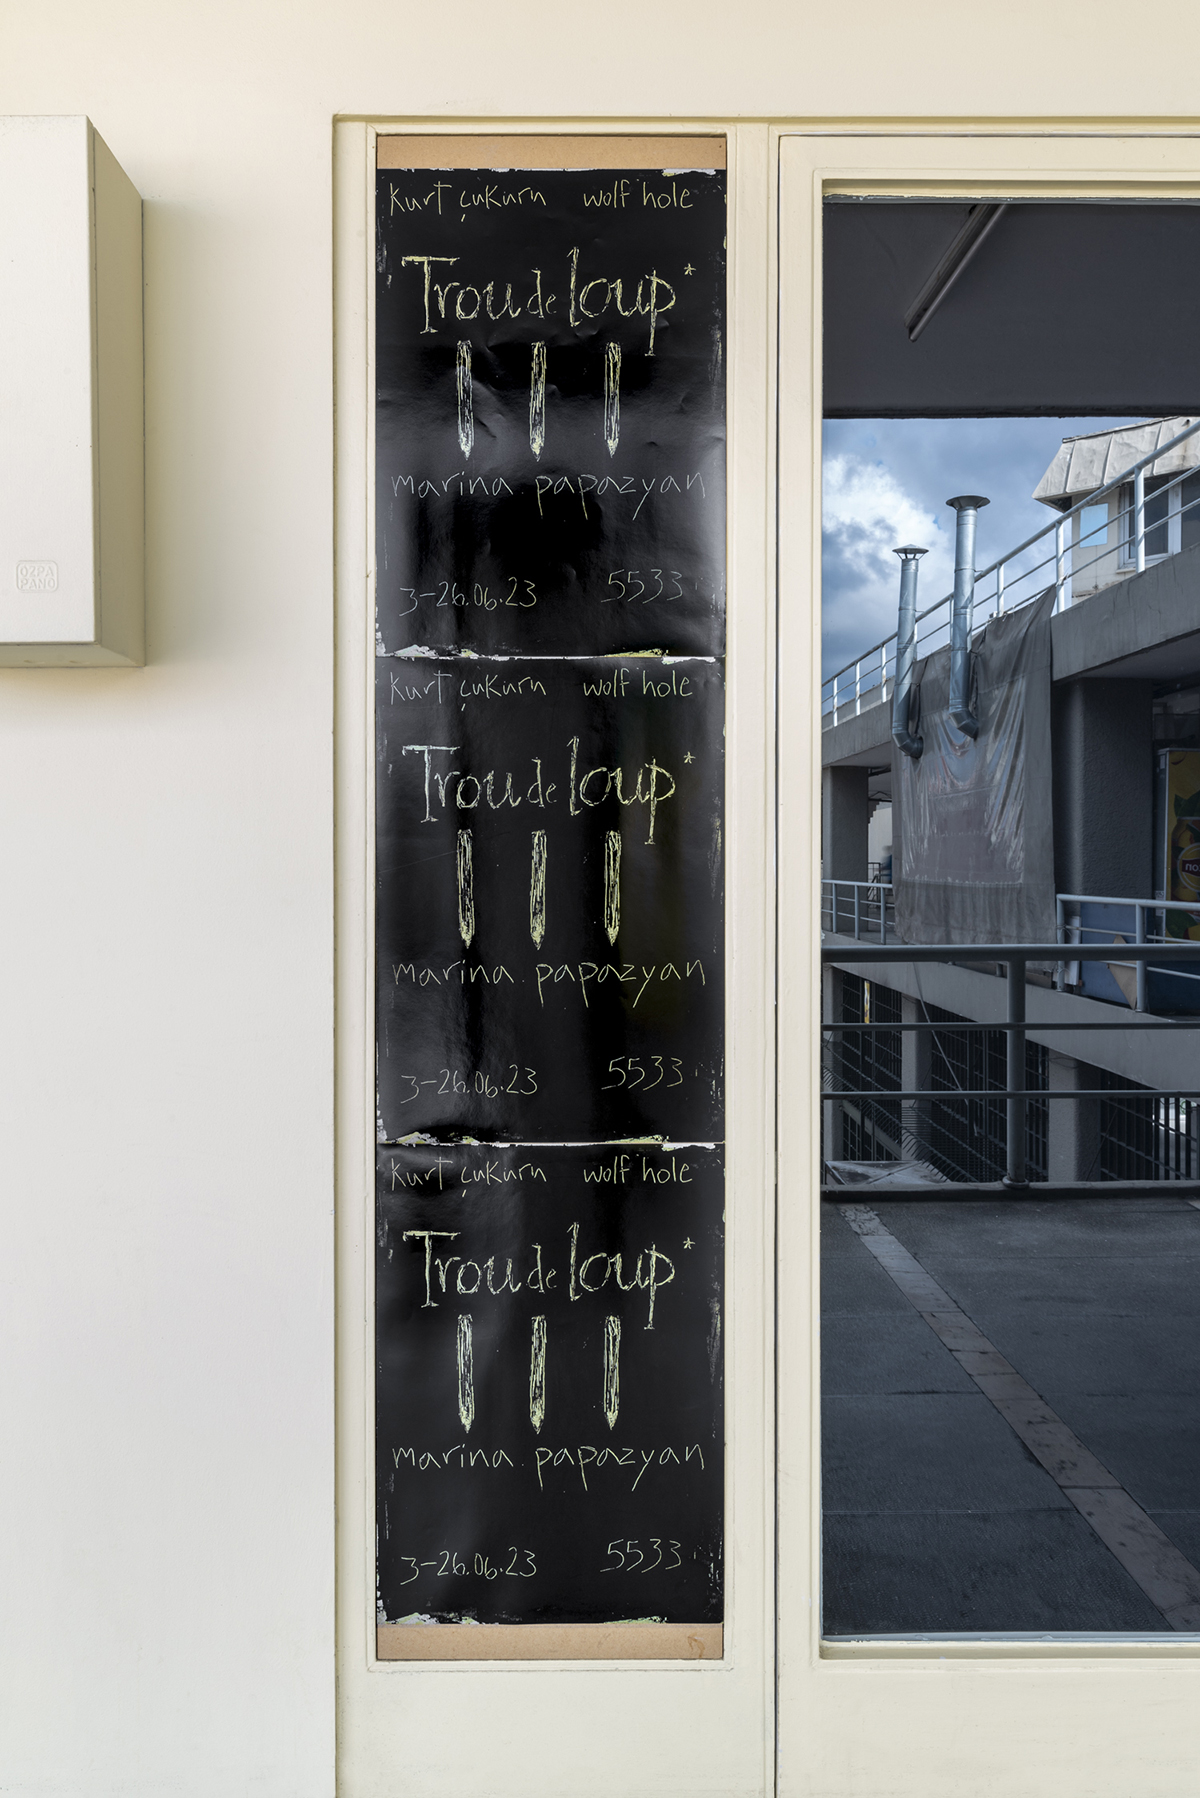 kurt çukurn wolf hole
Trou de loup*
marina papazyan
3-26.06.23 5533
kurt çukurn wolf hole
Trou de loup*
marina papazyan
3-26.06.23 5533
kurt çukurn wolf hole
Trou de loup*
marina papazyan
3-26.06.23 5533
OZPA
PANO